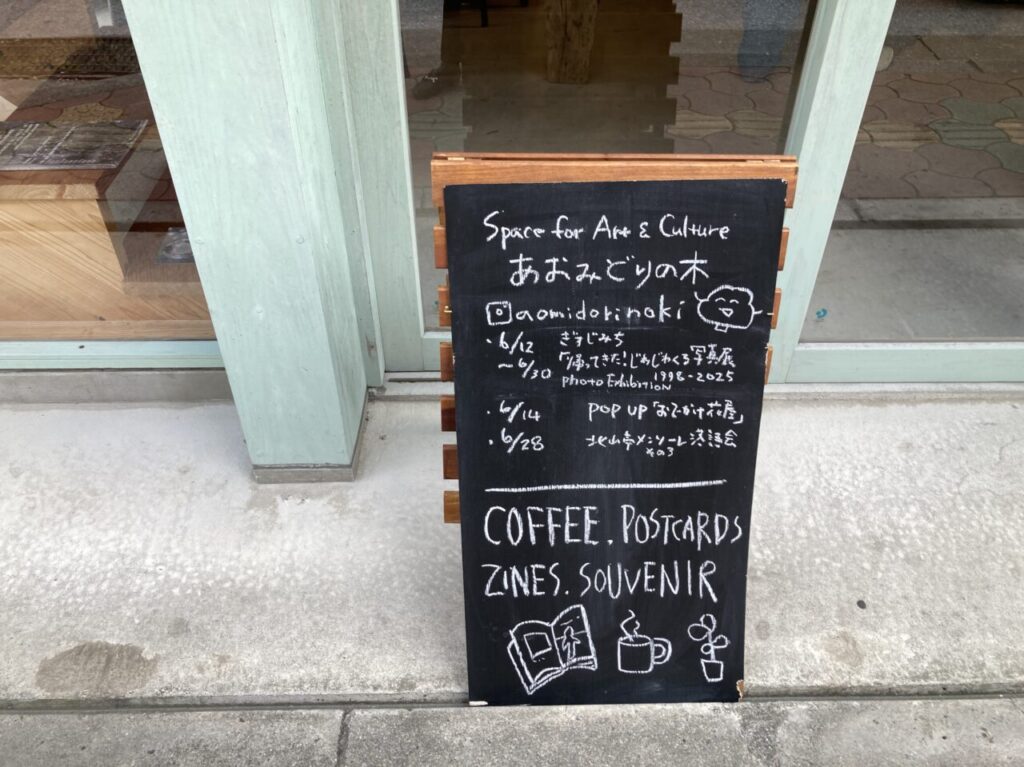 Space for Art & Culture
あおみどりの木
@aomidorinoki
・6/12 ぎすじみち
～6/30 「帰ってきた!じわじわくる写真展
Photo Exhibition 1998-2025
・6/14 POP UP「おでかけ花屋」
・6/28 北山亭メンソーレ落語会
その3
COFFEE. POSTCARDS
ZINES. SOUVENIR